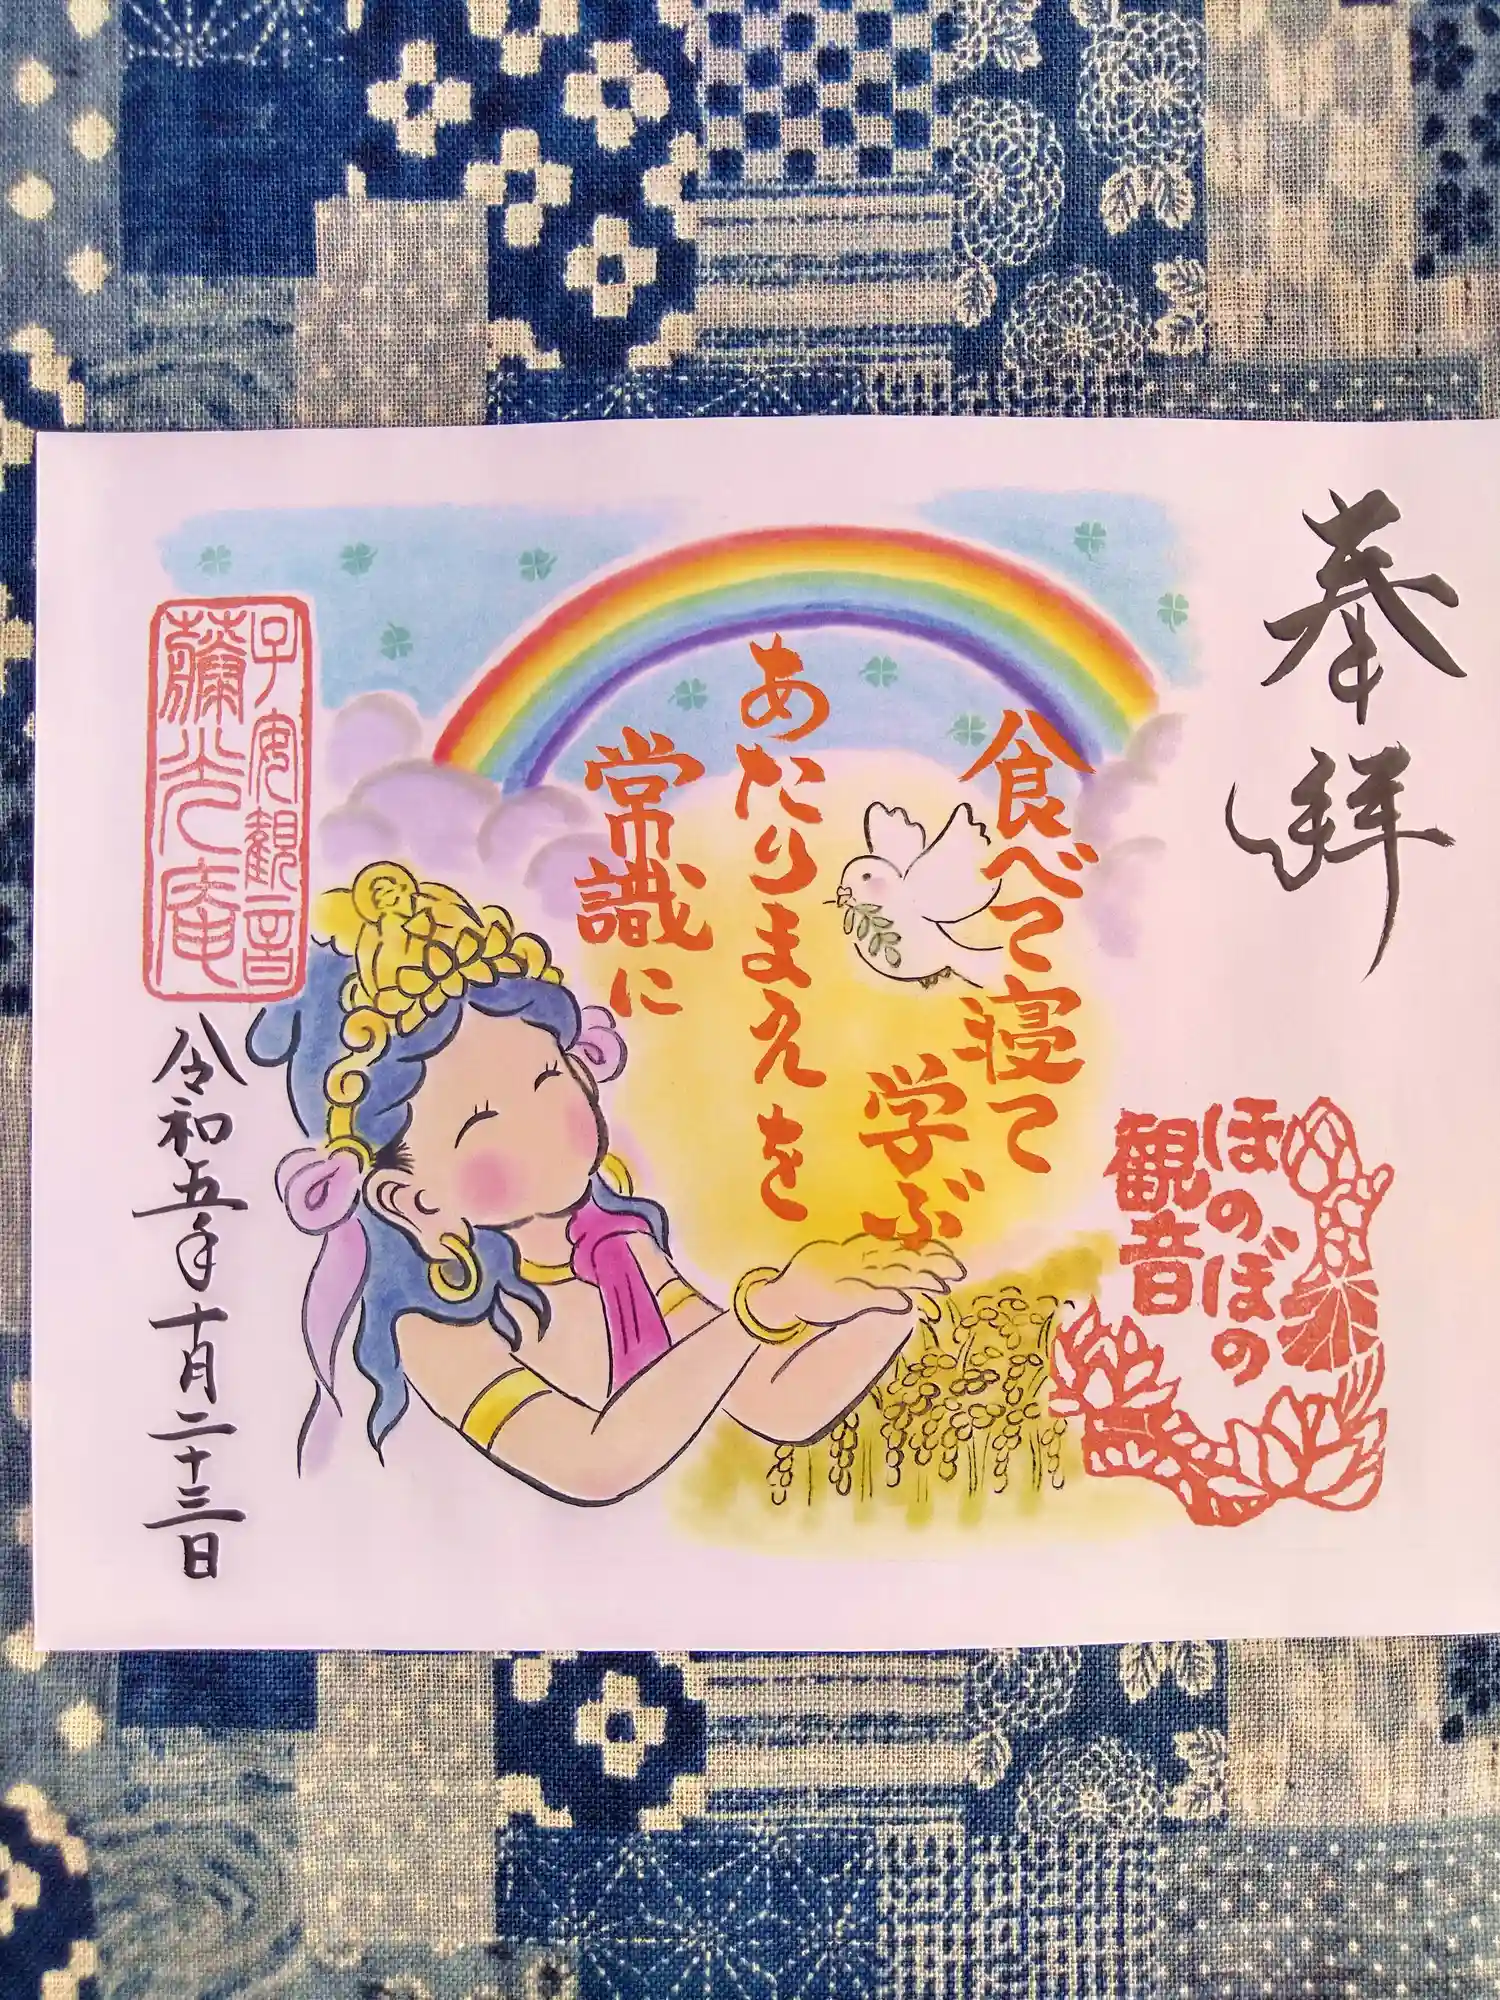 奉拝
ほのぼの
観音
食べて寝て
学ぶ
あたりまえを
常識に
子安観音
薬光庵
令和五年十月二十三日